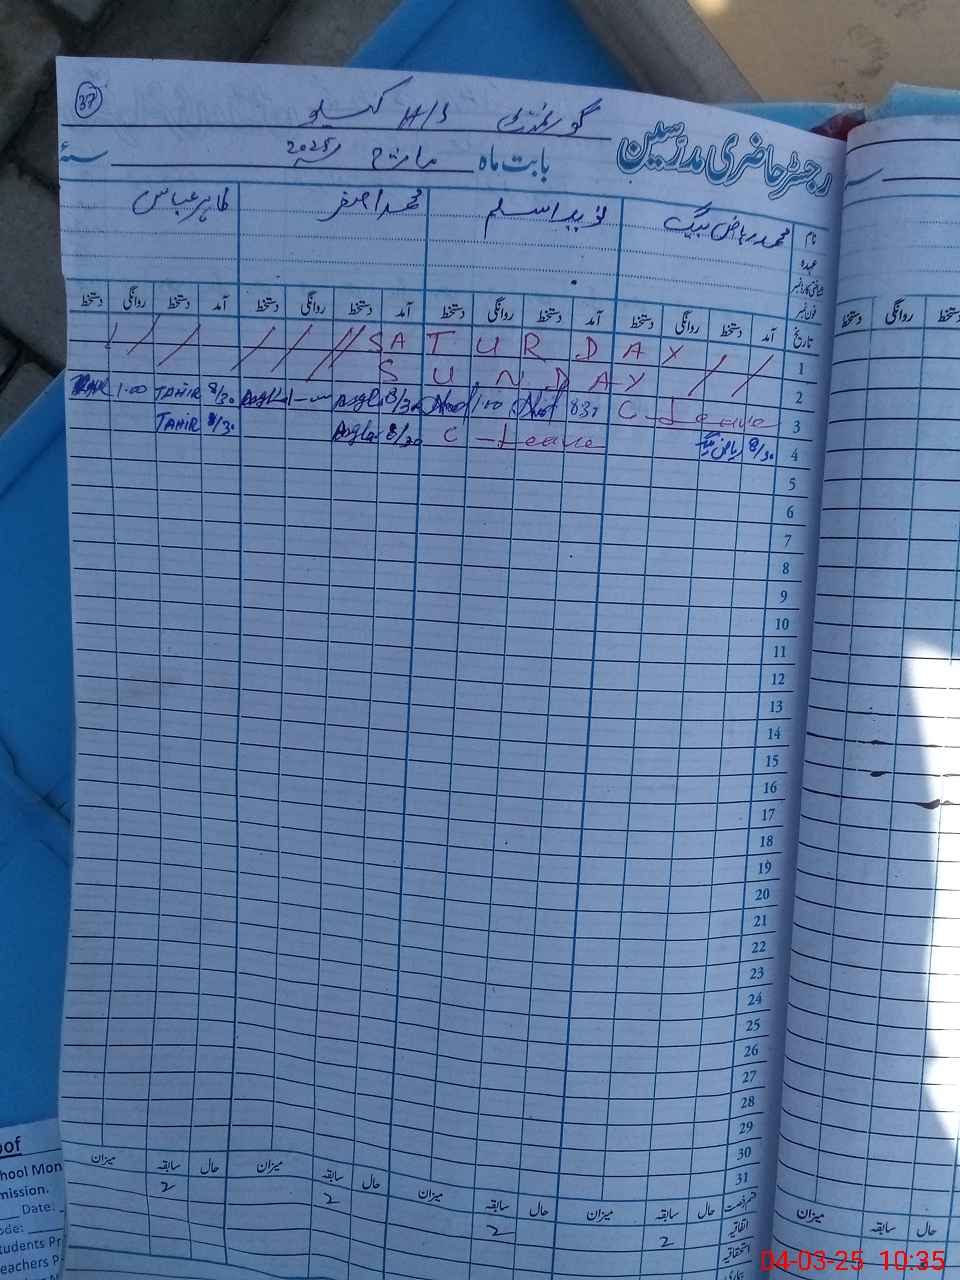 37
گورنمنٹ H/S
رجسٹر حاضری مدرسین
بابت ماہ مارچ 2025 سنہء
نام محمد ریاض بیگ نوید اسلم محمد اصغر طاہر عباس
عہدہ
فون نمبر
تاریخ آمد دستخط روانگی دستخط آمد دستخط روانگی دستخط آمد دستخط روانگی دستخط آمد دستخط روانگی دستخط
1 SATURDAY
2 SUNDAY
3 C-Leave 830 1:00 8/30 1-00 8/30 TAHIR 1:00
4 8/30 ریاض بیگ C-Leave 8/30 8/30 TAHIR
5
6
7
8
9
10
11
12
13
14
15
16
17
18
19
20
21
22
23
24
25
26
27
28
29
30
31
قسم رخصت حال سابقہ میزان حال سابقہ میزان حال سابقہ میزان حال سابقہ میزان
اتفاقیہ 2 2 2 2
استحقاقیہ
روانگی دستخط
دستخط
میزان سابقہ حال
oof
hool Mon
mission.
Date:
ode:
tudents Pr
eachers P
04-03-25 10:35